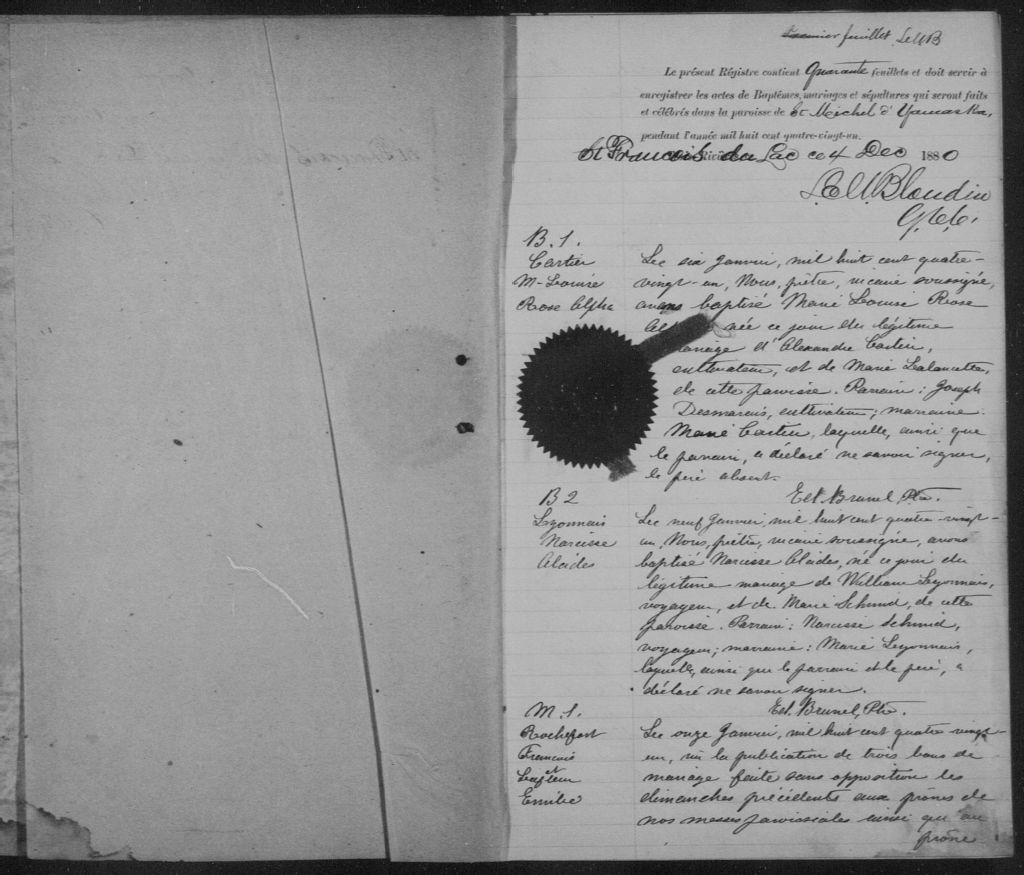 feuillet L.U.B
Le présent Régistre contient Quarante feuillets et doit servir à
enregistrer les actes de Baptêmes, mariages et sépultures qui seront faits
et célébrés dans la paroisse de St Michel d'Yamaska,
pendant l'année mil huit cent quatre-vingt-un.
St François du Lac ce 4 Dec 1880
Blondin
G.C.C.
B. 1.
Cartier
M-Louise
Rose Alpha
Lee six Janvier, mil huit cent quatre-
vingt-un, Nous, prêtre, vicaire soussigné,
avons baptisé Marie Louise Rose
née ce jour du légitime
mariage d'Alexandre Cartier,
cultivateur, et de Marie Lalancette,
de cette paroisse. Parrain: Joseph
Desmarais, cultivateur; marraine
Marie Cartier, laquelle, ainsi que
le parrain, a déclaré ne savoir signer,
le père absent.
Ed. Brunel Ptre.
B 2
Lyonnais
Narcisse
Alcides
Lee neuf Janvier, mil huit cent quatre-vingt-
un, Nous, prêtre, vicaire soussigné, avons
baptisé Narcisse Alcides, né ce jour du
légitime mariage de William Lyonnais,
voyageur, et de Marie Schmid, de cette
paroisse. Parrain: Narcisse Schmid,
voyageur; marraine: Marie Lyonnais,
laquelle, ainsi que le parrain et le père, a
déclaré ne savoir signer.
Ed. Brunel, Ptre.
M. 1.
Rochefort
François
et
Lafleur
Emilie
Lee onze Janvier, mil huit cent quatre vingt-
un, vu la publication de trois bans de
mariage faite sans opposition les
dimanches précédents aux prônes de
nos messes paroissiales ainsi qu'au
prône